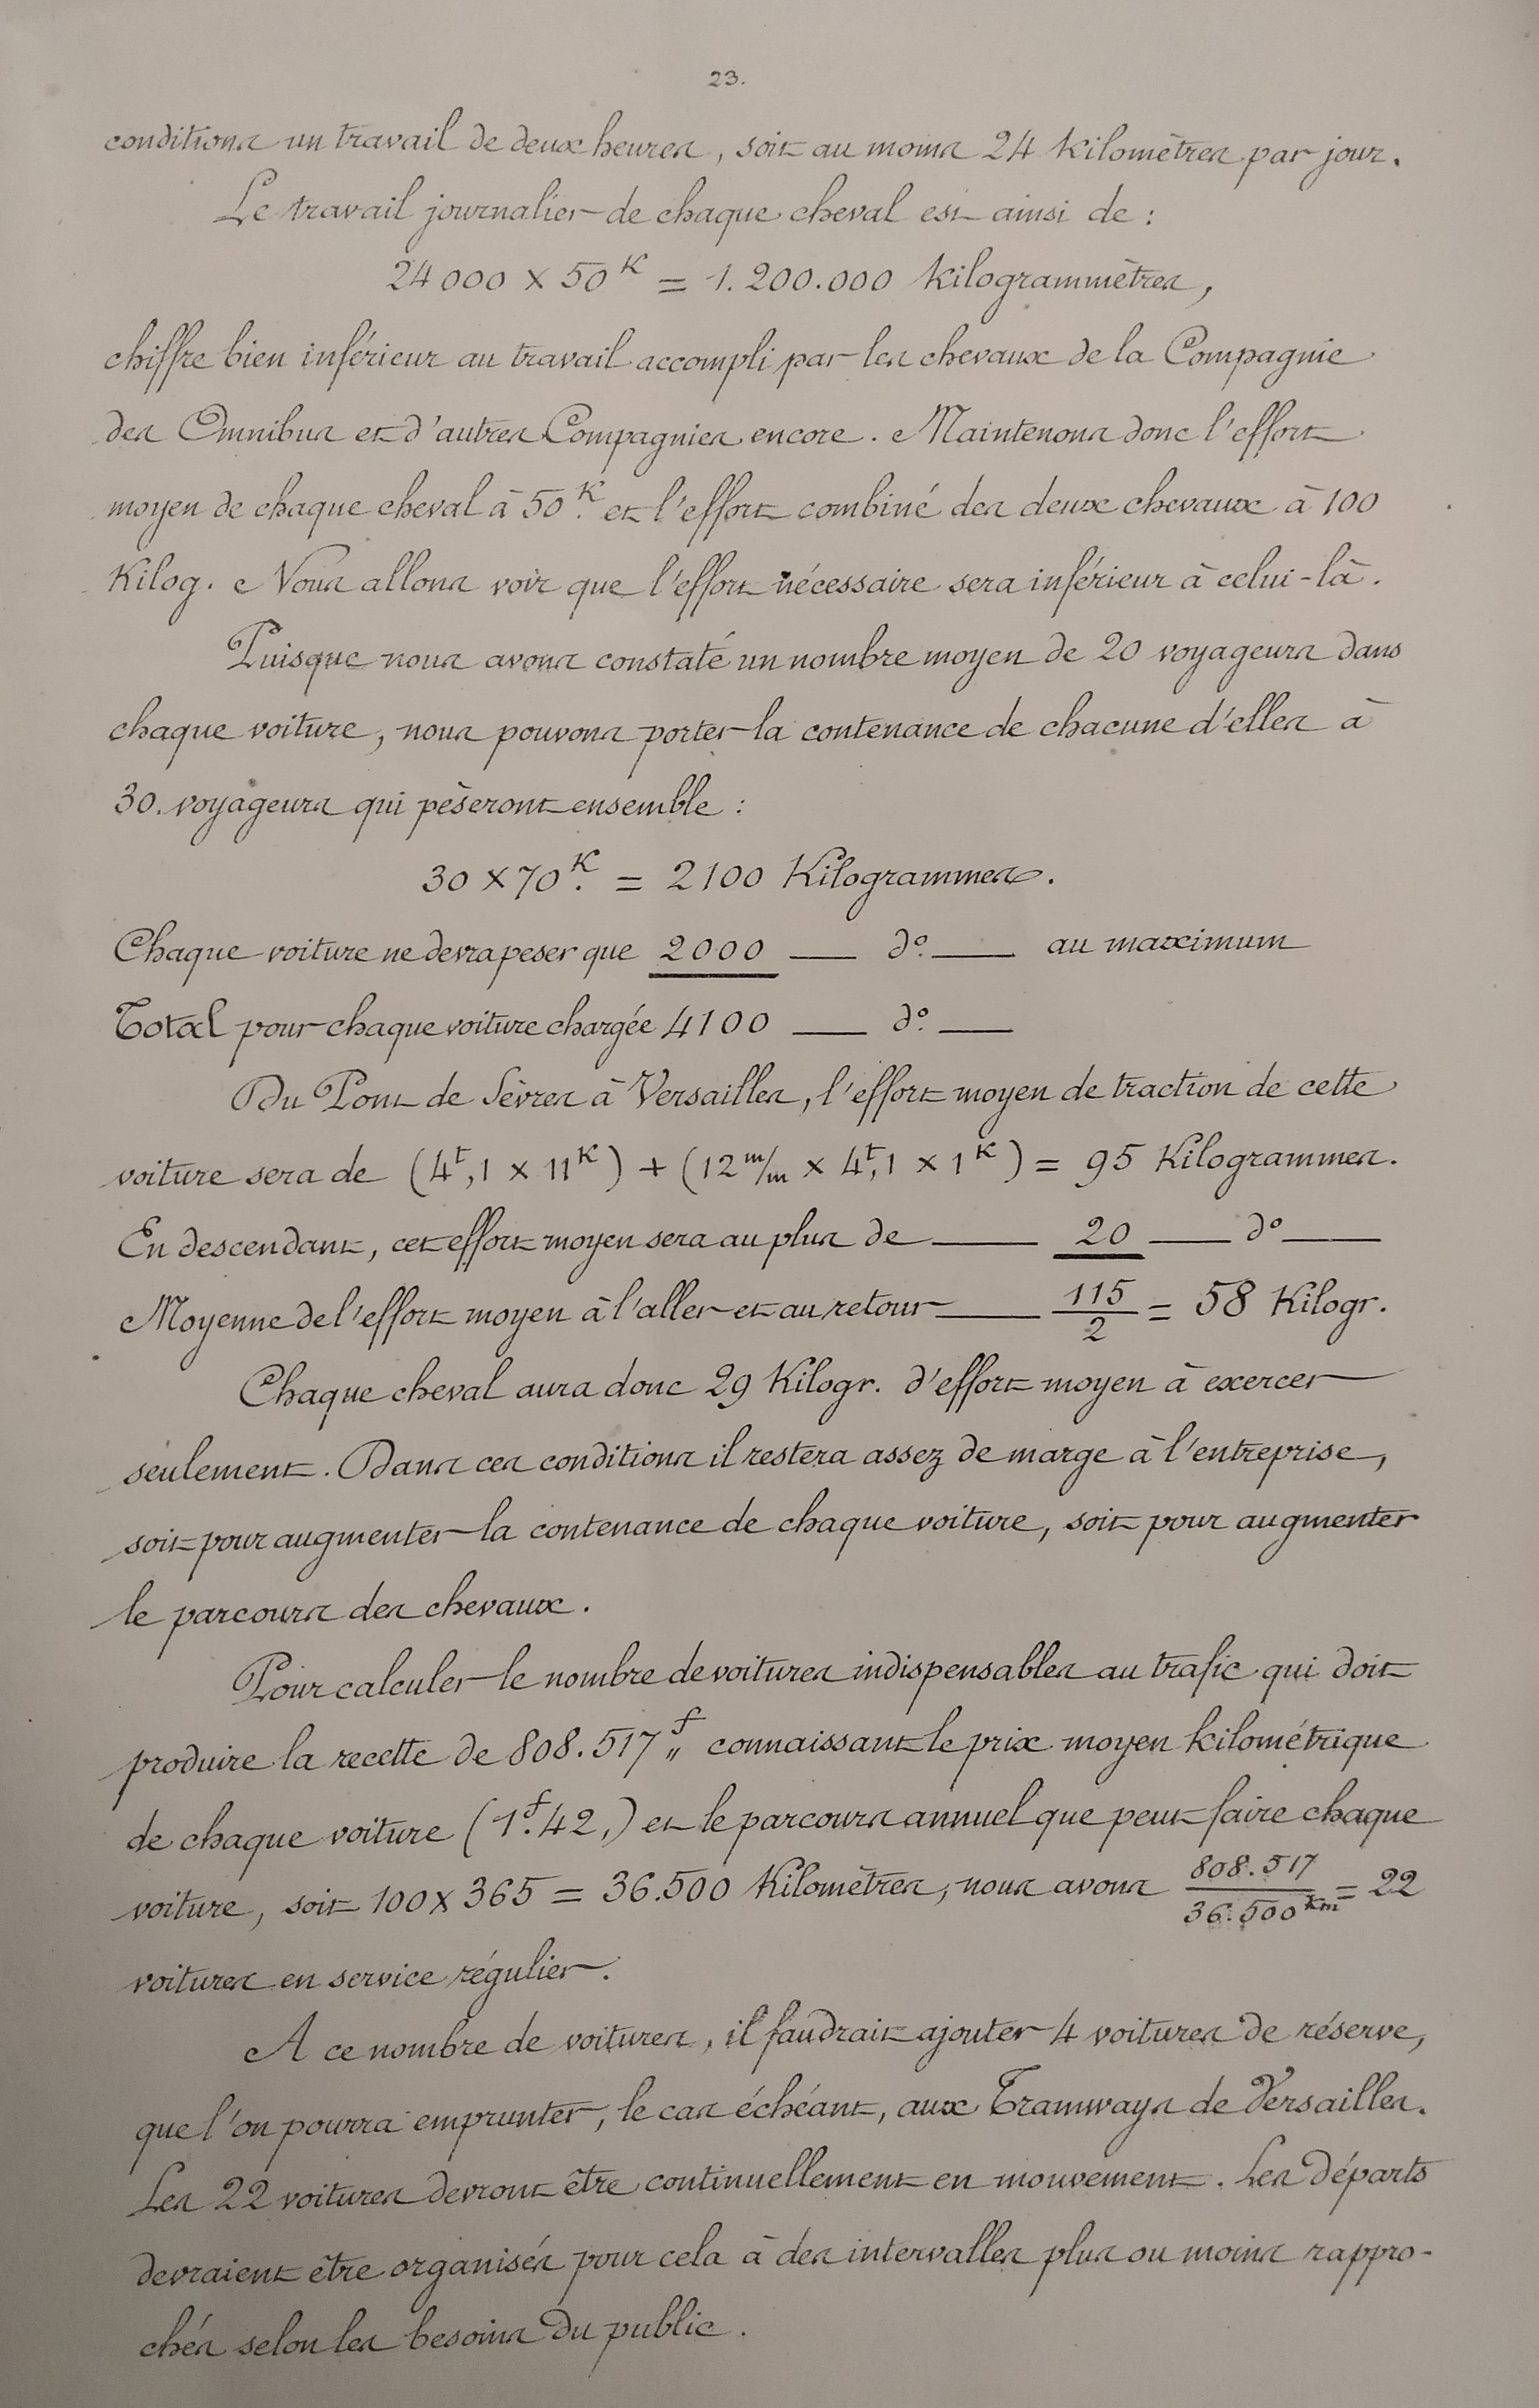 23.
conditions un travail de deux heures, soit au moins 24 Kilomètres par jour.
Le travail journalier de chaque cheval est ainsi de :
24000 × 50ᴷ = 1.200.000 Kilogrammètres,
chiffre bien inférieur au travail accompli par les chevaux de la Compagnie
des Omnibus et d'autres Compagnies encore. Maintenons donc l'effort
moyen de chaque cheval à 50ᴷ. et l'effort combiné des deux chevaux à 100
Kilog. Nous allons voir que l'effort nécessaire sera inférieur à celui-là.
Puisque nous avons constaté un nombre moyen de 20 voyageurs dans
chaque voiture, nous pouvons porter la contenance de chacune d'elles à
30. voyageurs qui pèseront ensemble :
30 × 70ᴷ. = 2100 Kilogrammes.
Chaque voiture ne devra peser que 2000 — d°. — au maximum
Total pour chaque voiture chargée 4100 — d°. —
Du Pont de Sèvres à Versailles, l'effort moyen de traction de cette
voiture sera de (4ᵗ,1 × 11ᴷ) + (12 m/m × 4ᵗ,1 × 1ᴷ) = 95 Kilogrammes.
En descendant, cet effort moyen sera au plus de — 20 — d° —
Moyenne de l'effort moyen à l'aller et au retour — 115/2 = 58 Kilogr.
Chaque cheval aura donc 29 Kilogr. d'effort moyen à exercer
seulement. Dans ces conditions il restera assez de marge à l'entreprise,
soit pour augmenter la contenance de chaque voiture, soit pour augmenter
le parcours des chevaux.
Pour calculer le nombre de voitures indispensables au trafic qui doit
produire la recette de 808.517ᶠ„ connaissant le prix moyen kilométrique
de chaque voiture (1ᶠ.42,) et le parcours annuel que peut faire chaque
voiture, soit 100 × 365 = 36.500 Kilomètres, nous avons 808.517/36.500ᴷᵐ = 22
voitures en service régulier.
A ce nombre de voitures, il faudrait ajouter 4 voitures de réserve,
que l'on pourra emprunter, le cas échéant, aux Tramways de Versailles.
Les 22 voitures devront être continuellement en mouvement. Les départs
devraient être organisés pour cela à des intervalles plus ou moins rappro-
chés selon les besoins du public.